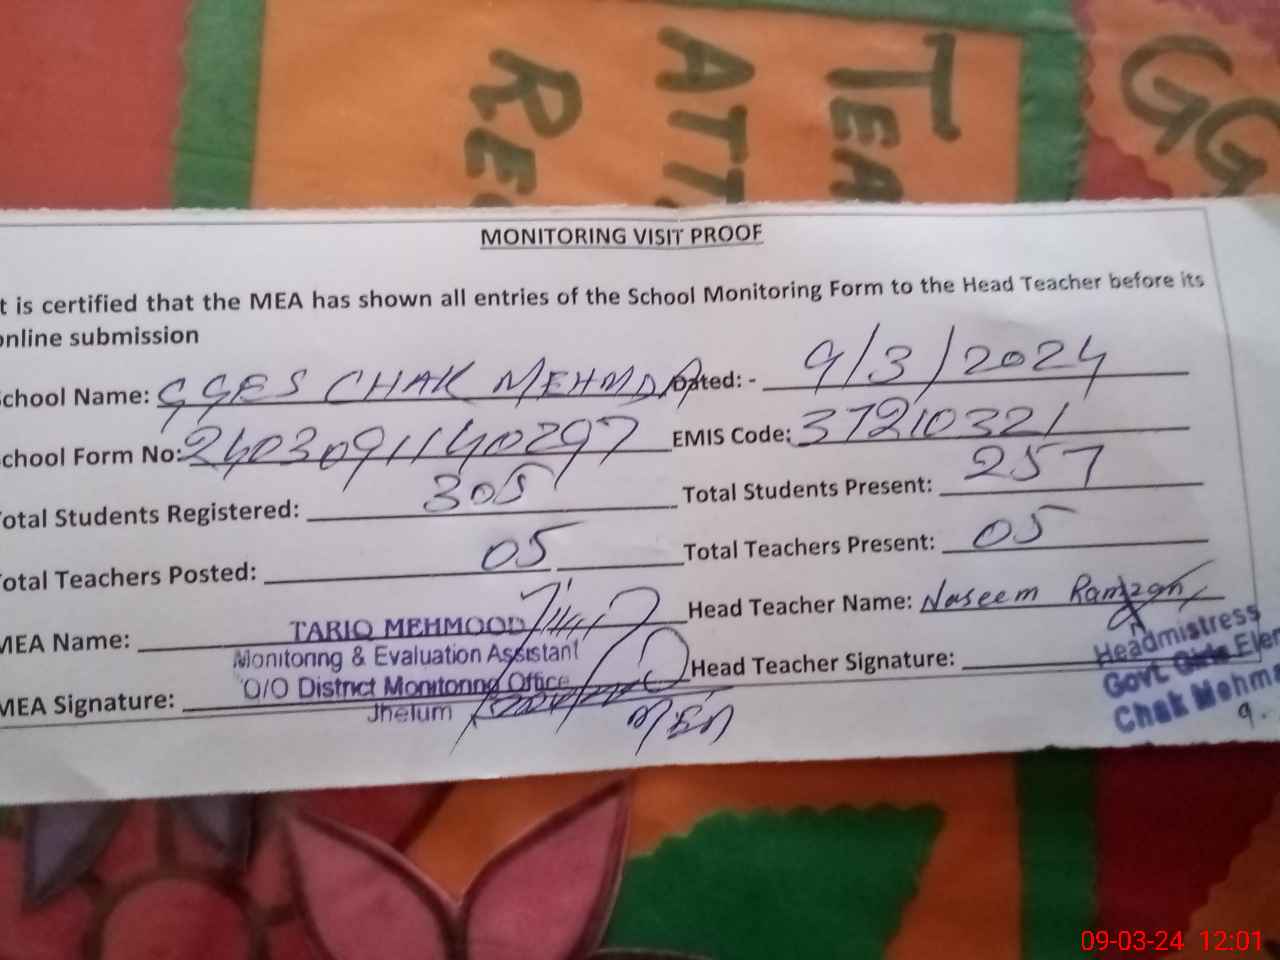 GG
TEA
ATT
REC
MONITORING VISIT PROOF
t is certified that the MEA has shown all entries of the School Monitoring Form to the Head Teacher before its
online submission
School Name: GGES CHAK MEHMDA Dated: - 9/3/2024
School Form No: 2403091140297 EMIS Code: 37210321
Total Students Registered: 305 Total Students Present: 257
Total Teachers Posted: 05 Total Teachers Present: 05
MEA Name: TARIQ MEHMOOD Head Teacher Name: Naseem Ramzan
Monitoring & Evaluation Assistant
O/O District Monitoring Office
Jhelum
MEA Signature: MEA Head Teacher Signature:
Headmistress
Govt Girls Elem
Chak Mehm
9.
09-03-24 12:01